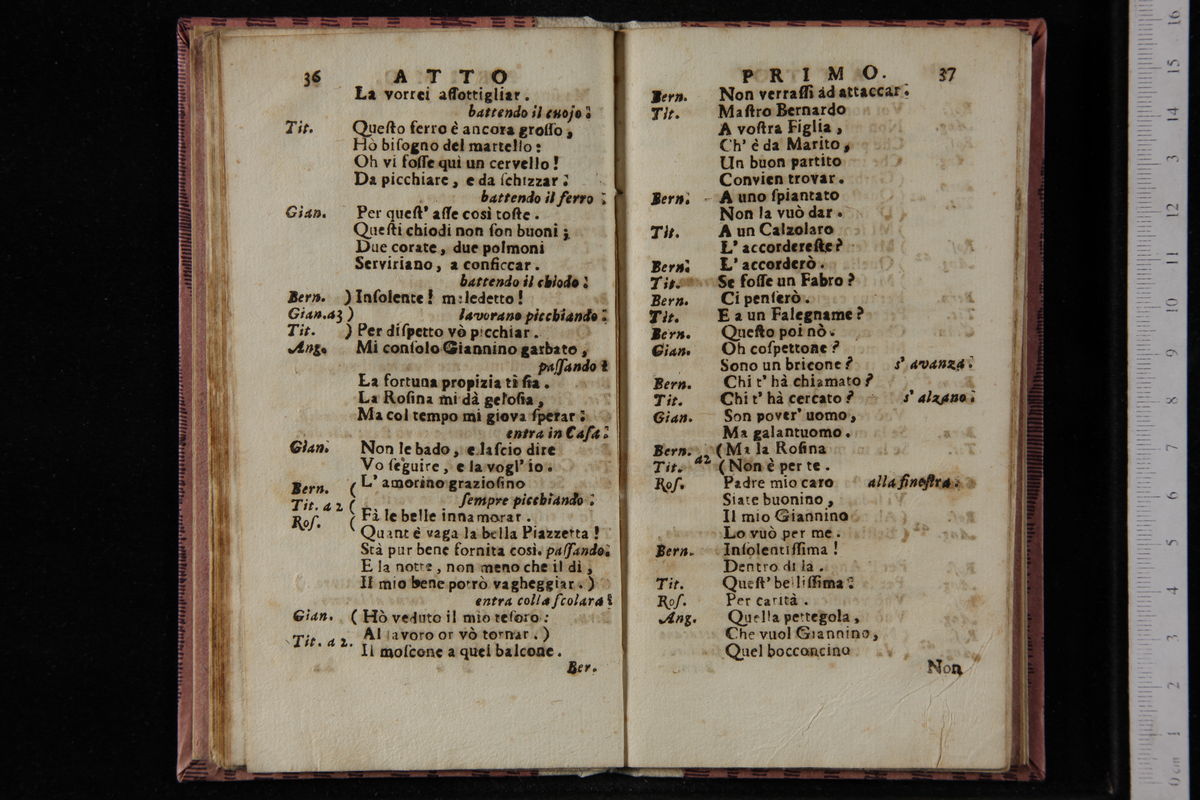 36 ATTO
La vorrei aſſottigliar.
battendo il cuojo:
Tit. Queſto ferro è ancora groſſo,
Hò biſogno del martello:
Oh vi foſſe qui un cervello!
Da picchiare, e da ſchizzar:
battendo il ferro:
Gian. Per queſt' aſſe così toſte.
Queſti chiodi non ſon buoni;
Due corate, due polmoni
Serviriano, a conficcar.
battendo il chiodo:
Bern. ) Inſolente! maledetto!
Gian. a3 ) lavorano picchiando:
Tit. ) Per diſpetto vò picchiar.
Ang. Mi conſolo Giannino garbato,
paſſando:
La fortuna propizia tì ſia.
La Roſina mi dà geloſia,
Ma col tempo mi giova ſperar:
entra in Caſa:
Gian. Non le bado, e laſcio dire
Vo ſeguire, e la vogl' io.
Bern. ( L' amorino grazioſino
Tit. a 2 ( ſempre picchiando:
Roſ. ( Fà le belle innamorar.
Quant è vaga la bella Piazzetta!
Stà pur bene fornita così. paſſando:
E la notte, non meno che il dì,
Il mio bene potrò vagheggiar.)
entra colla ſcolara:
Gian. ( Hò veduto il mio teſoro:
Al lavoro or vò tornar.)
Tit. a 2. Il moſcone a quel balcone.
Ber.
PRIMO. 37
Bern. Non verraſſi ad attaccar:
Tit. Maſtro Bernardo
A voſtra Figlia,
Ch' è da Marito,
Un buon partito
Convien trovar.
Bern. A uno ſpiantato
Non la vuò dar.
Tit. A un Calzolaro
L' accordereſte?
Bern. L' accorderò.
Tit. Se foſſe un Fabro?
Bern. Ci penſerò.
Tit. E a un Falegname?
Bern. Queſto poi nò.
Gian. Oh coſpettone?
Sono un bricone? s' avanza:
Bern. Chi t' hà chiamato?
Tit. Chi t' hà cercato? s' alzano:
Gian. Son pover' uomo,
Ma galantuomo.
Bern. ( Ma la Roſina
Tit. a2 ( Non è per te.
Roſ. Padre mio caro alla fineſtra:
Siate buonino,
Il mio Giannino
Lo vuò per me.
Bern. Inſolentiſſima!
Dentro di la.
Tit. Queſt' belliſſima:
Roſ. Per carità.
Ang. Quella pettegola,
Che vuol Giannino,
Quel bocconcino
Non